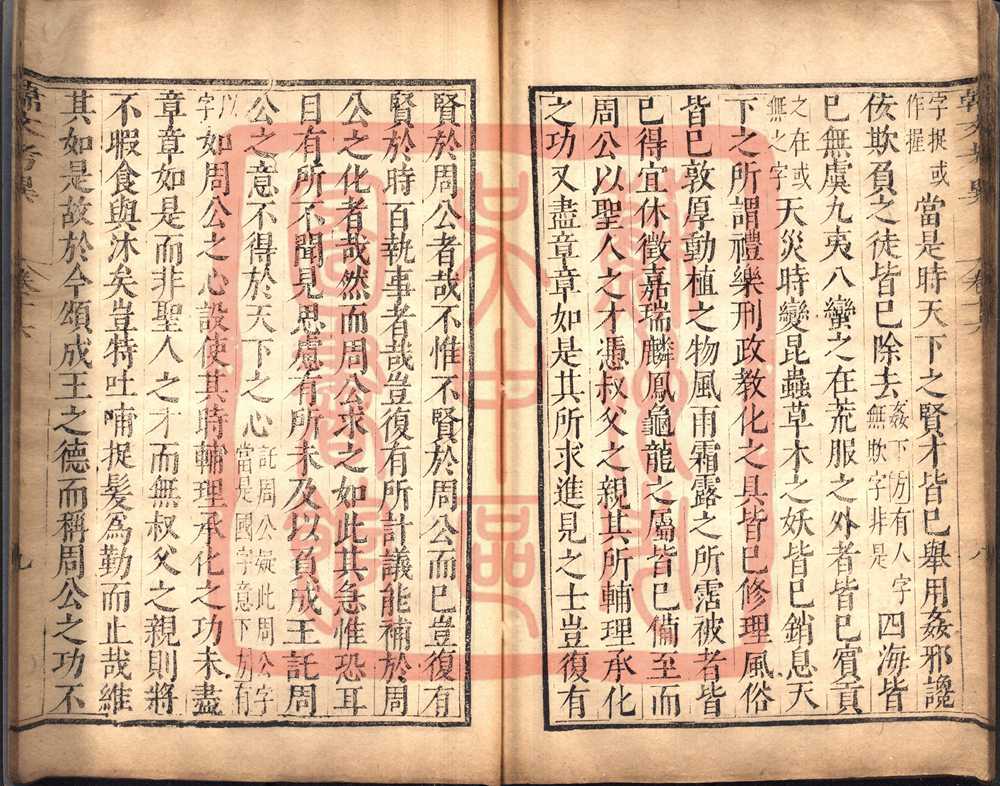 字捉或作握當是時天下之賢才皆已舉用姦邪讒
佞欺負之徒皆已除去姦下方有人字無欺字非是四海皆
已無虞九夷八蠻之在荒服之外者皆已賓貢
之在或無之字天災時變昆蟲草木之妖皆已銷息天
下之所謂禮樂刑政教化之具皆已修理風俗
皆已敦厚動植之物風雨霜露之所霑被者皆
已得宜休徵嘉瑞麟鳳龜龍之屬皆已備至而
周公以聖人之才憑叔父之親其所輔理承化
之功又盡章章如是其所求進見之士豈復有
八
賢於周公者哉不惟不賢於周公而已豈復有
賢於時百執事者哉豈復有所計議能補於周
公之化者哉然而周公求之如此其急惟恐耳
目有所不聞見思慮有所未及以負成王託周
公之意不得於天下之心託周公疑此周公字當是國字意下方有以
字如周公之心設使其時輔理承化之功未盡
章章如是而非聖人之才而無叔父之親則將
不暇食與沐矣豈特吐哺捉髮為勤而止哉維
其如是故於今頌成王之德而稱周公之功不
九